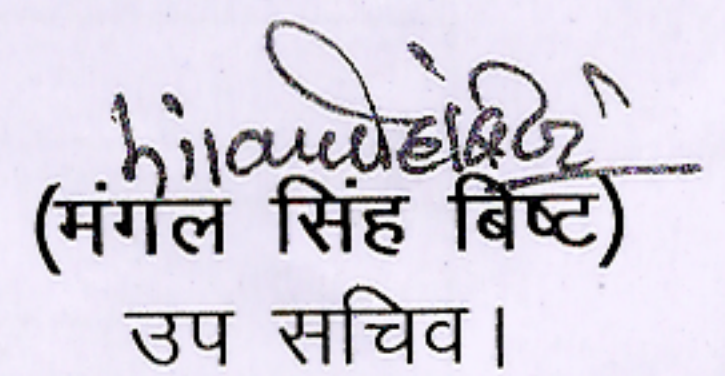 (मंगल सिंह बिष्ट)
उप सचिव।